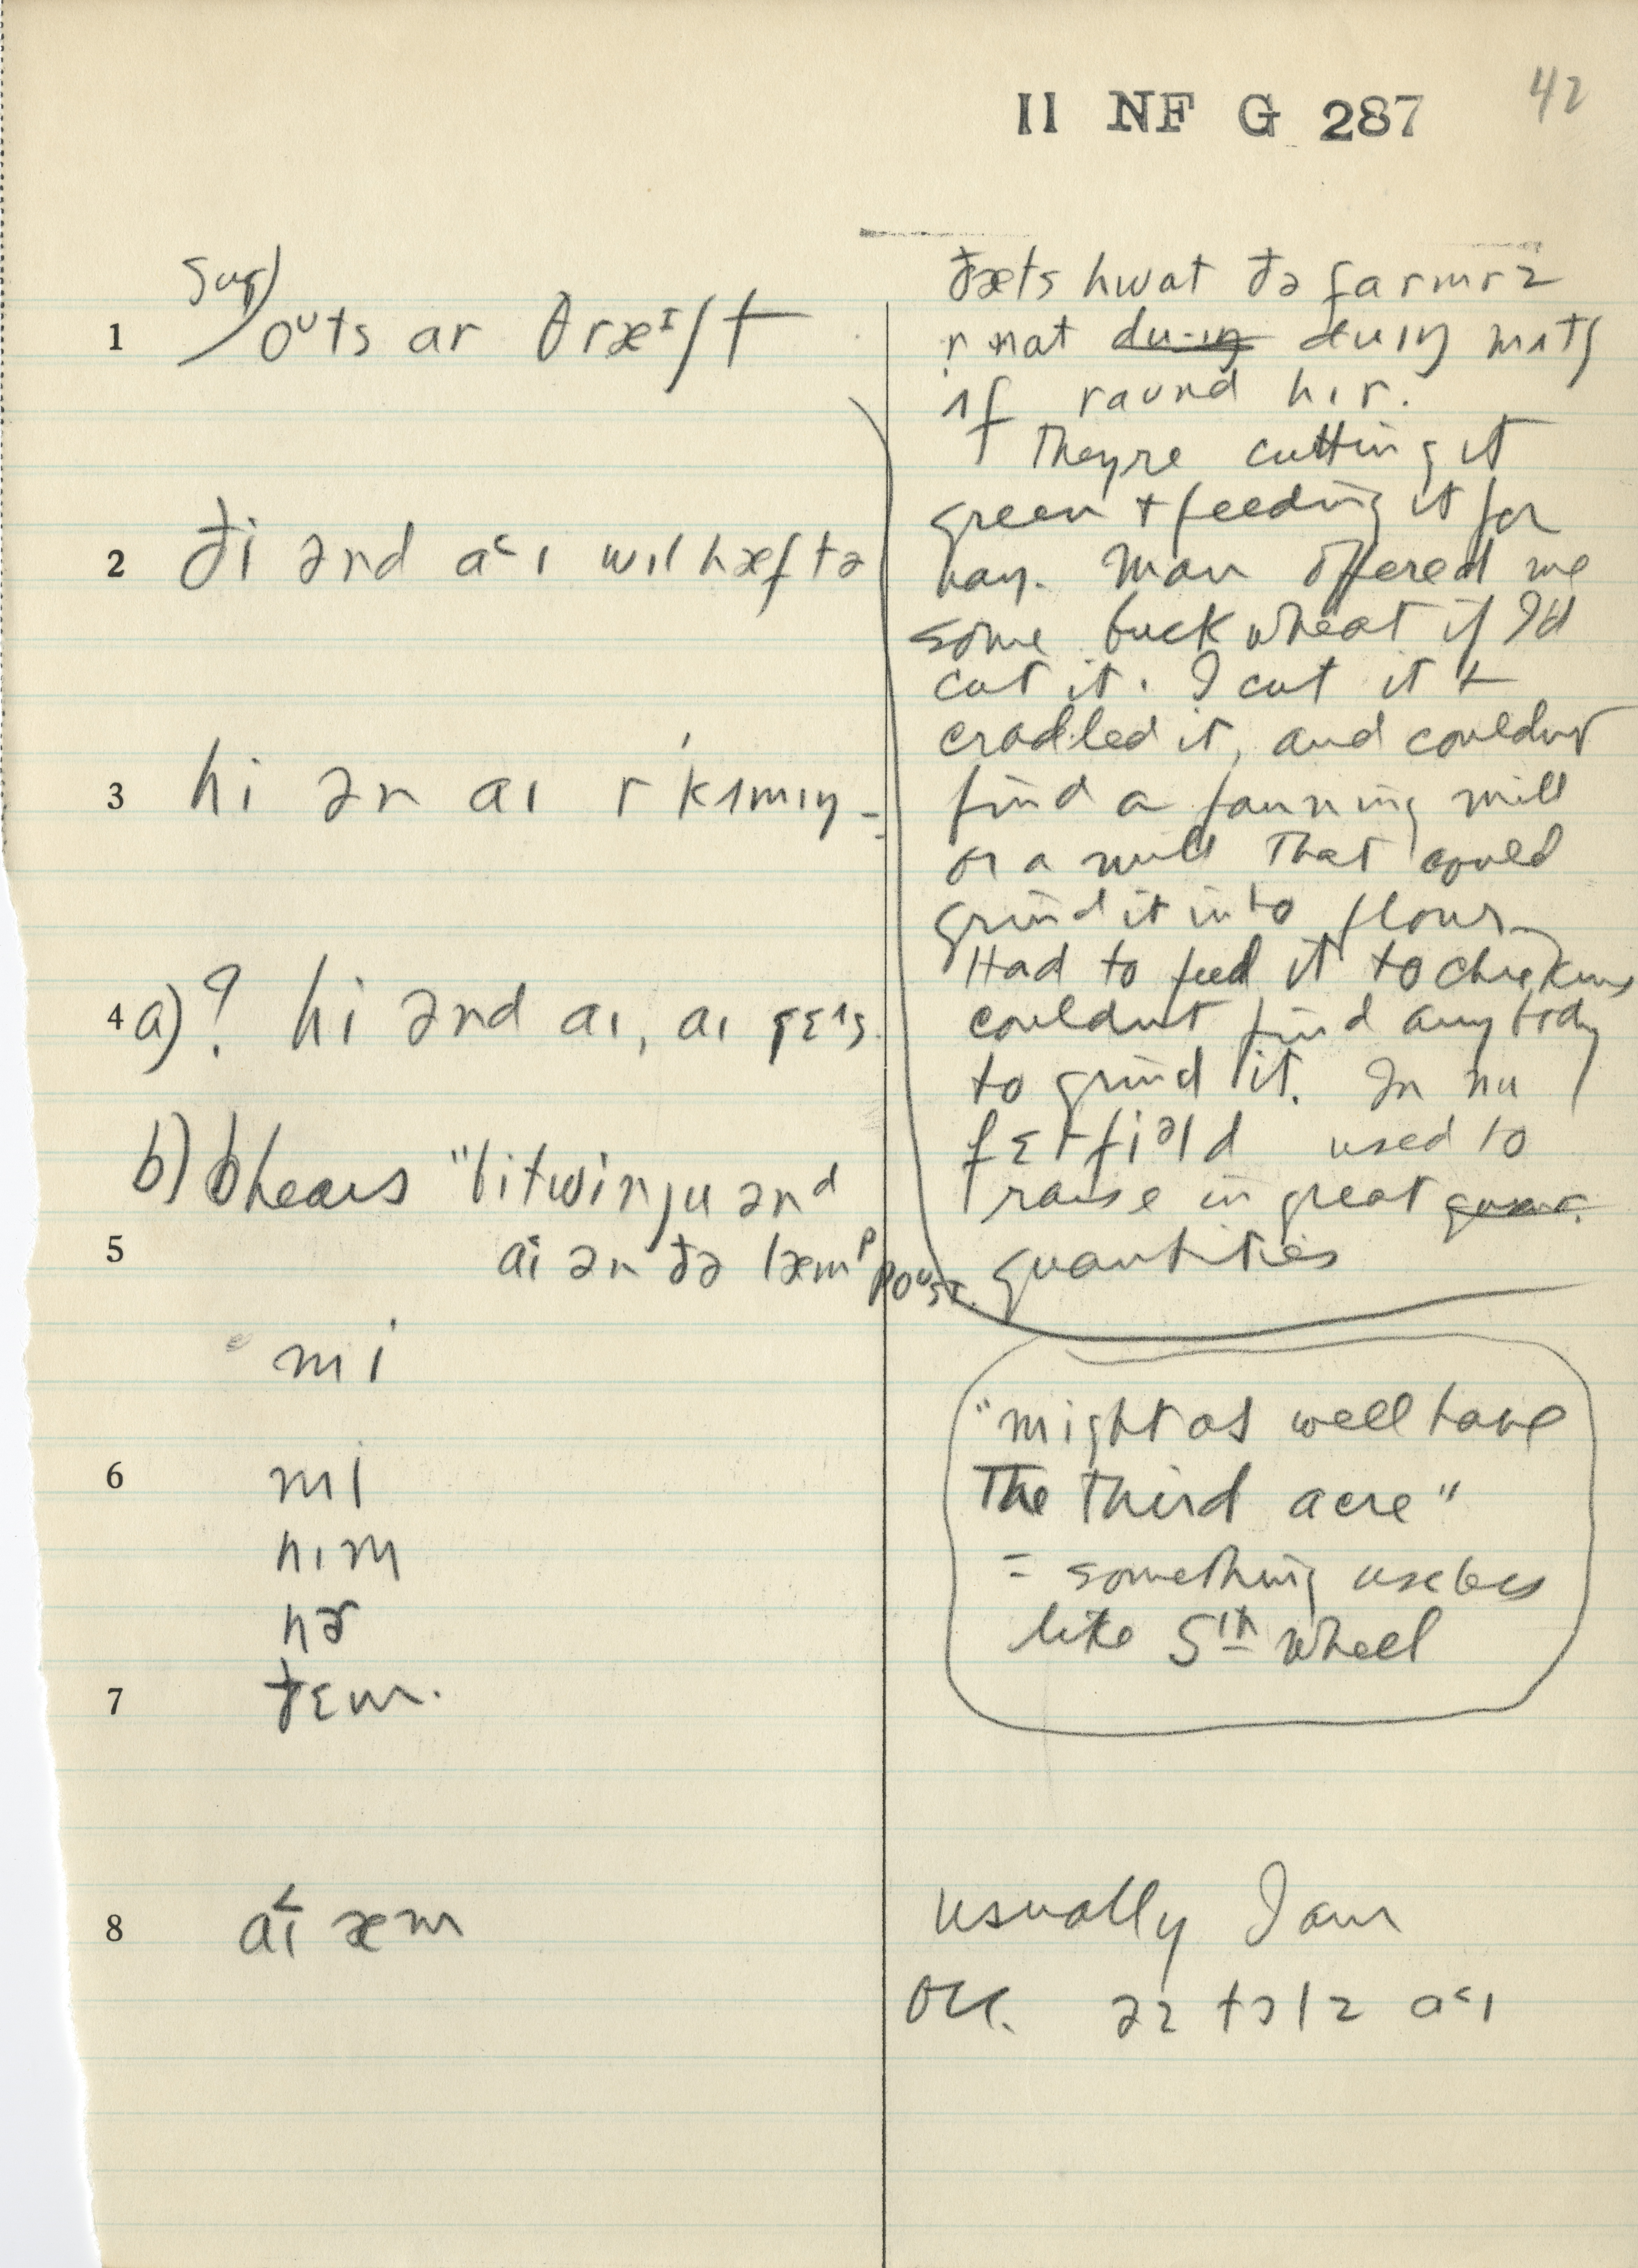 II NF G 287
42
sug)
1 oᵁts ar θræᶦʃt
2 ði ənd a˂ɪ wɪl hæftə
3 hi ən aɪ r kɪmɪŋ
4 a) ? hi ənd aɪ, aɪ gɛɪs
b) hears "bitwin ju ənd
5 aɪ ən ðə læmᵖ poᵁst.
mi
6 mi
hɪm
hɚ
7 ðɛm.
8 a˂ɪ æm
ðæts hwat ðə farmrz
r nat duɪŋ mʌtʃ
ʌf raund hɪr.
They're cutting it
green + feeding it for
hay. Man offered me
some buck wheat if I'd
cut it. I cut it +
cradled it, and couldn't
find a fanning mill
or a mill that could
grind it into flour
Had to feed it to chickens
couldn't find anybody
to grind it. In nu
fɛrfiəld used to
raise in great
quantities
"might as well have
The third acre"
= something useless
like 5th wheel
usually I am
occ. əz tɔlz a˂ɪ